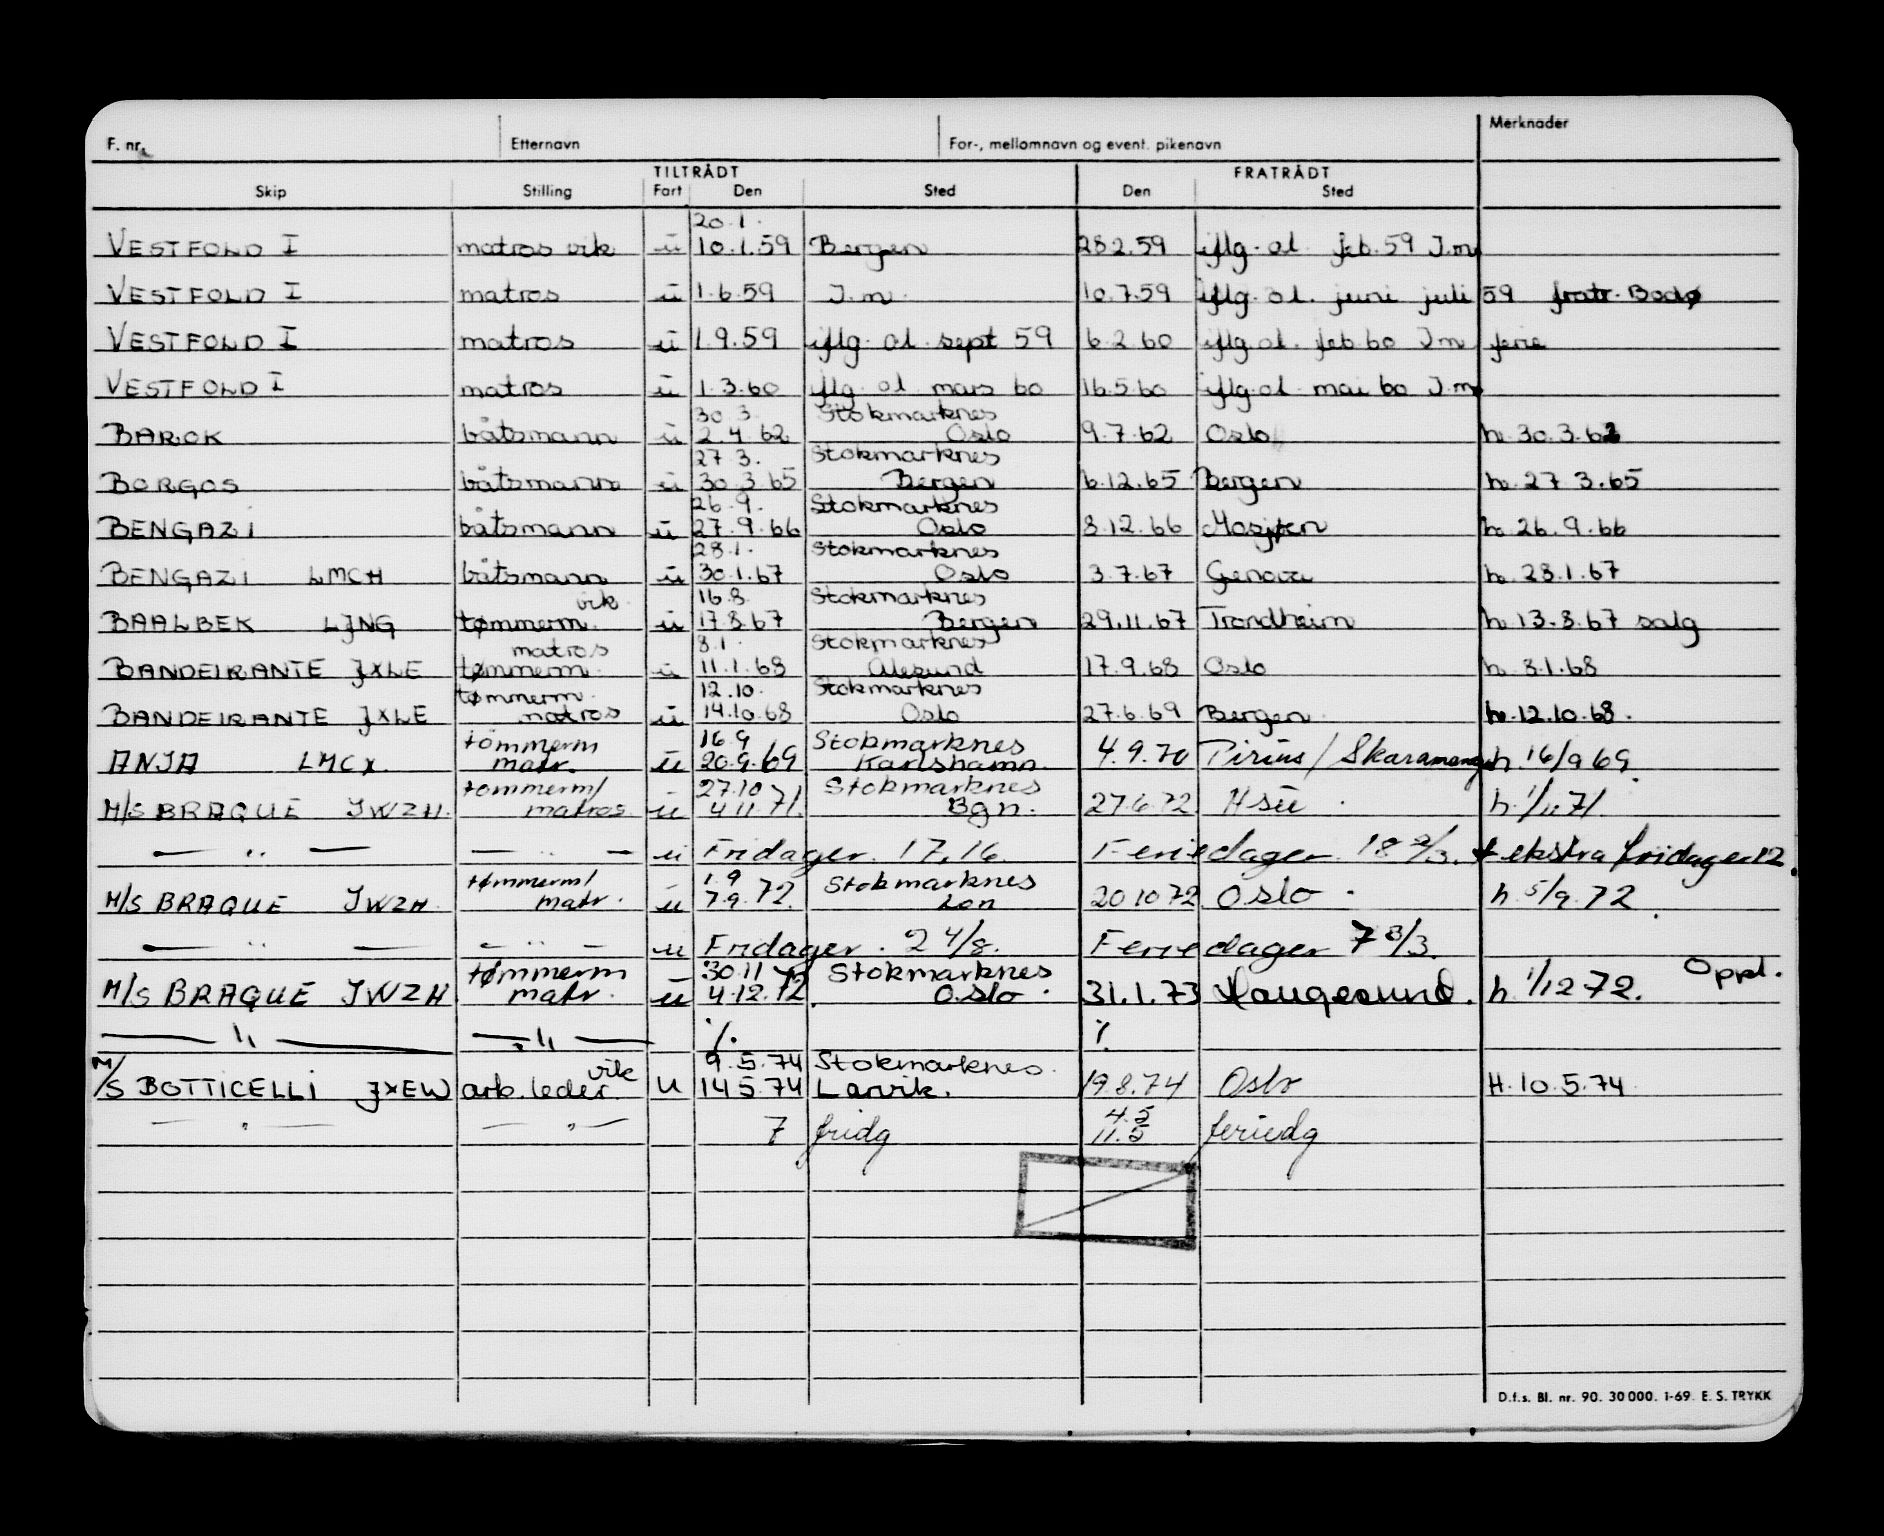 F. nr. Etternavn For-, mellomnavn og event. pikenavn Merknader
TILTRÅDT FRATRÅDT
Skip Stilling Fart Den Sted Den Sted
20.1.
VESTFOLD I matros vik u 10.1.59 Bergen 28.2.59 iflg. ol. feb. 59 I.m
VESTFOLD I matros u 1.6.59 I.m. 10.7.59 iflg. ol. juni juli 59 fratr. Bodø
VESTFOLD I matros u 1.9.59 iflg. ol. sept 59 6.2.60 iflg. ol. feb 60 I.m ferie
VESTFOLD I matros u 1.3.60 iflg. ol. mars 60 16.5.60 iflg. ol. mai 60 I.m
30.3. Stokmarknes
BAROK båtsmann u 2.4.62 Oslo 9.7.62 Oslo h. 30.3.62
27.3. Stokmarknes
BORGOS båtsmann u 30.3.65 Bergen 6.12.65 Bergen h. 27.3.65
26.9. Stokmarknes
BENGAZI båtsmann u 27.9.66 Oslo 8.12.66 Mosjøen h. 26.9.66
28.1. Stokmarknes
BENGAZI LMCH båtsmann u 30.1.67 Oslo 3.7.67 Genova h. 28.1.67
vik. 16.8. Stokmarknes
BAALBEK LJNG tømmerm. u 17.8.67 Bergen 29.11.67 Trondheim h. 13.8.67 salg
matros 8.1. Stokmarknes
BANDEIRANTE JXLE tømmerm. u 11.1.68 Ålesund 17.9.68 Oslo h. 8.1.68
tømmerm. 12.10. Stokmarknes
BANDEIRANTE JXLE matros u 14.10.68 Oslo 27.6.69 Bergen. h. 12.10.68.
tömmerm 16.9 Stokmarknes
ANJA LMCX. matr. u 20.9.69 Karlshamn. 4.9.70 Pirius / Skaramenga h. 16/9 69.
tommerm/ 27.10 Stokmarknes
M/S BRAQUE JWZH. matros. u 4.11.71. Bgn. 27.6.72 Hsu . h. 1/11 71.
— ,, — — ,, — u Fridager. 17,16. Feriedager 18 2/3. + ekstra fridager 12.
tømmerm/ 1.9 Stokmarknes
M/S BRAQUE JWZH. matr. u 7.9.72. Lon 20.10.72 Oslo. h. 5/9.72.
— ,, — — ,, — u Fridager. 2 4/8. Feriedager 7 3/3.
tømmerm 30.11 Stokmarknes Oppl.
M/S BRAQUE JWZH matr. u 4.12.72. Oslo. 31.1.73 Haugesund. h. 1/12 72.
— ,, — — ,, — ./. ./.
vik 9.5.74 Stokmarknes.
M/S BOTTICELLI JXEW arb. leder. u 14.5.74 Larvik. 19.8.74 Oslo H. 10.5.74
4.5
— ,, — — ,, — 7 fridg 11.5 feriedg
D.f.s. Bl. nr. 90. 30 000. 1-69. E. S. TRYKK